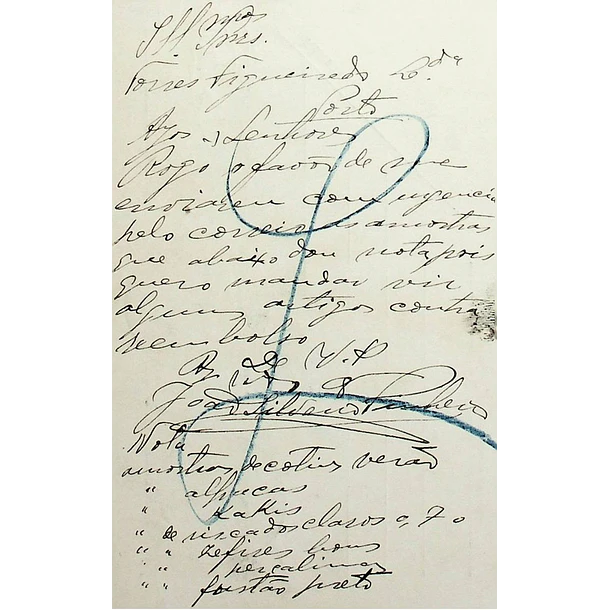 Ill.mos Snrs.
Torres Figueiredo L.da
Porto
Senhores
Rogo o favor de me
enviarem com urgencia
pelo correio as amostras
que abaixo dou nota pois
quero mandar vir
alguns artigos contra
reembolso
De V. S.
João Silverio Pinheiro
Nota
amostras de cotins verão
" alpacas
" kakis
" de riscados claros 0,70
" " zefires bons
" " percalinas
" " fustão preto